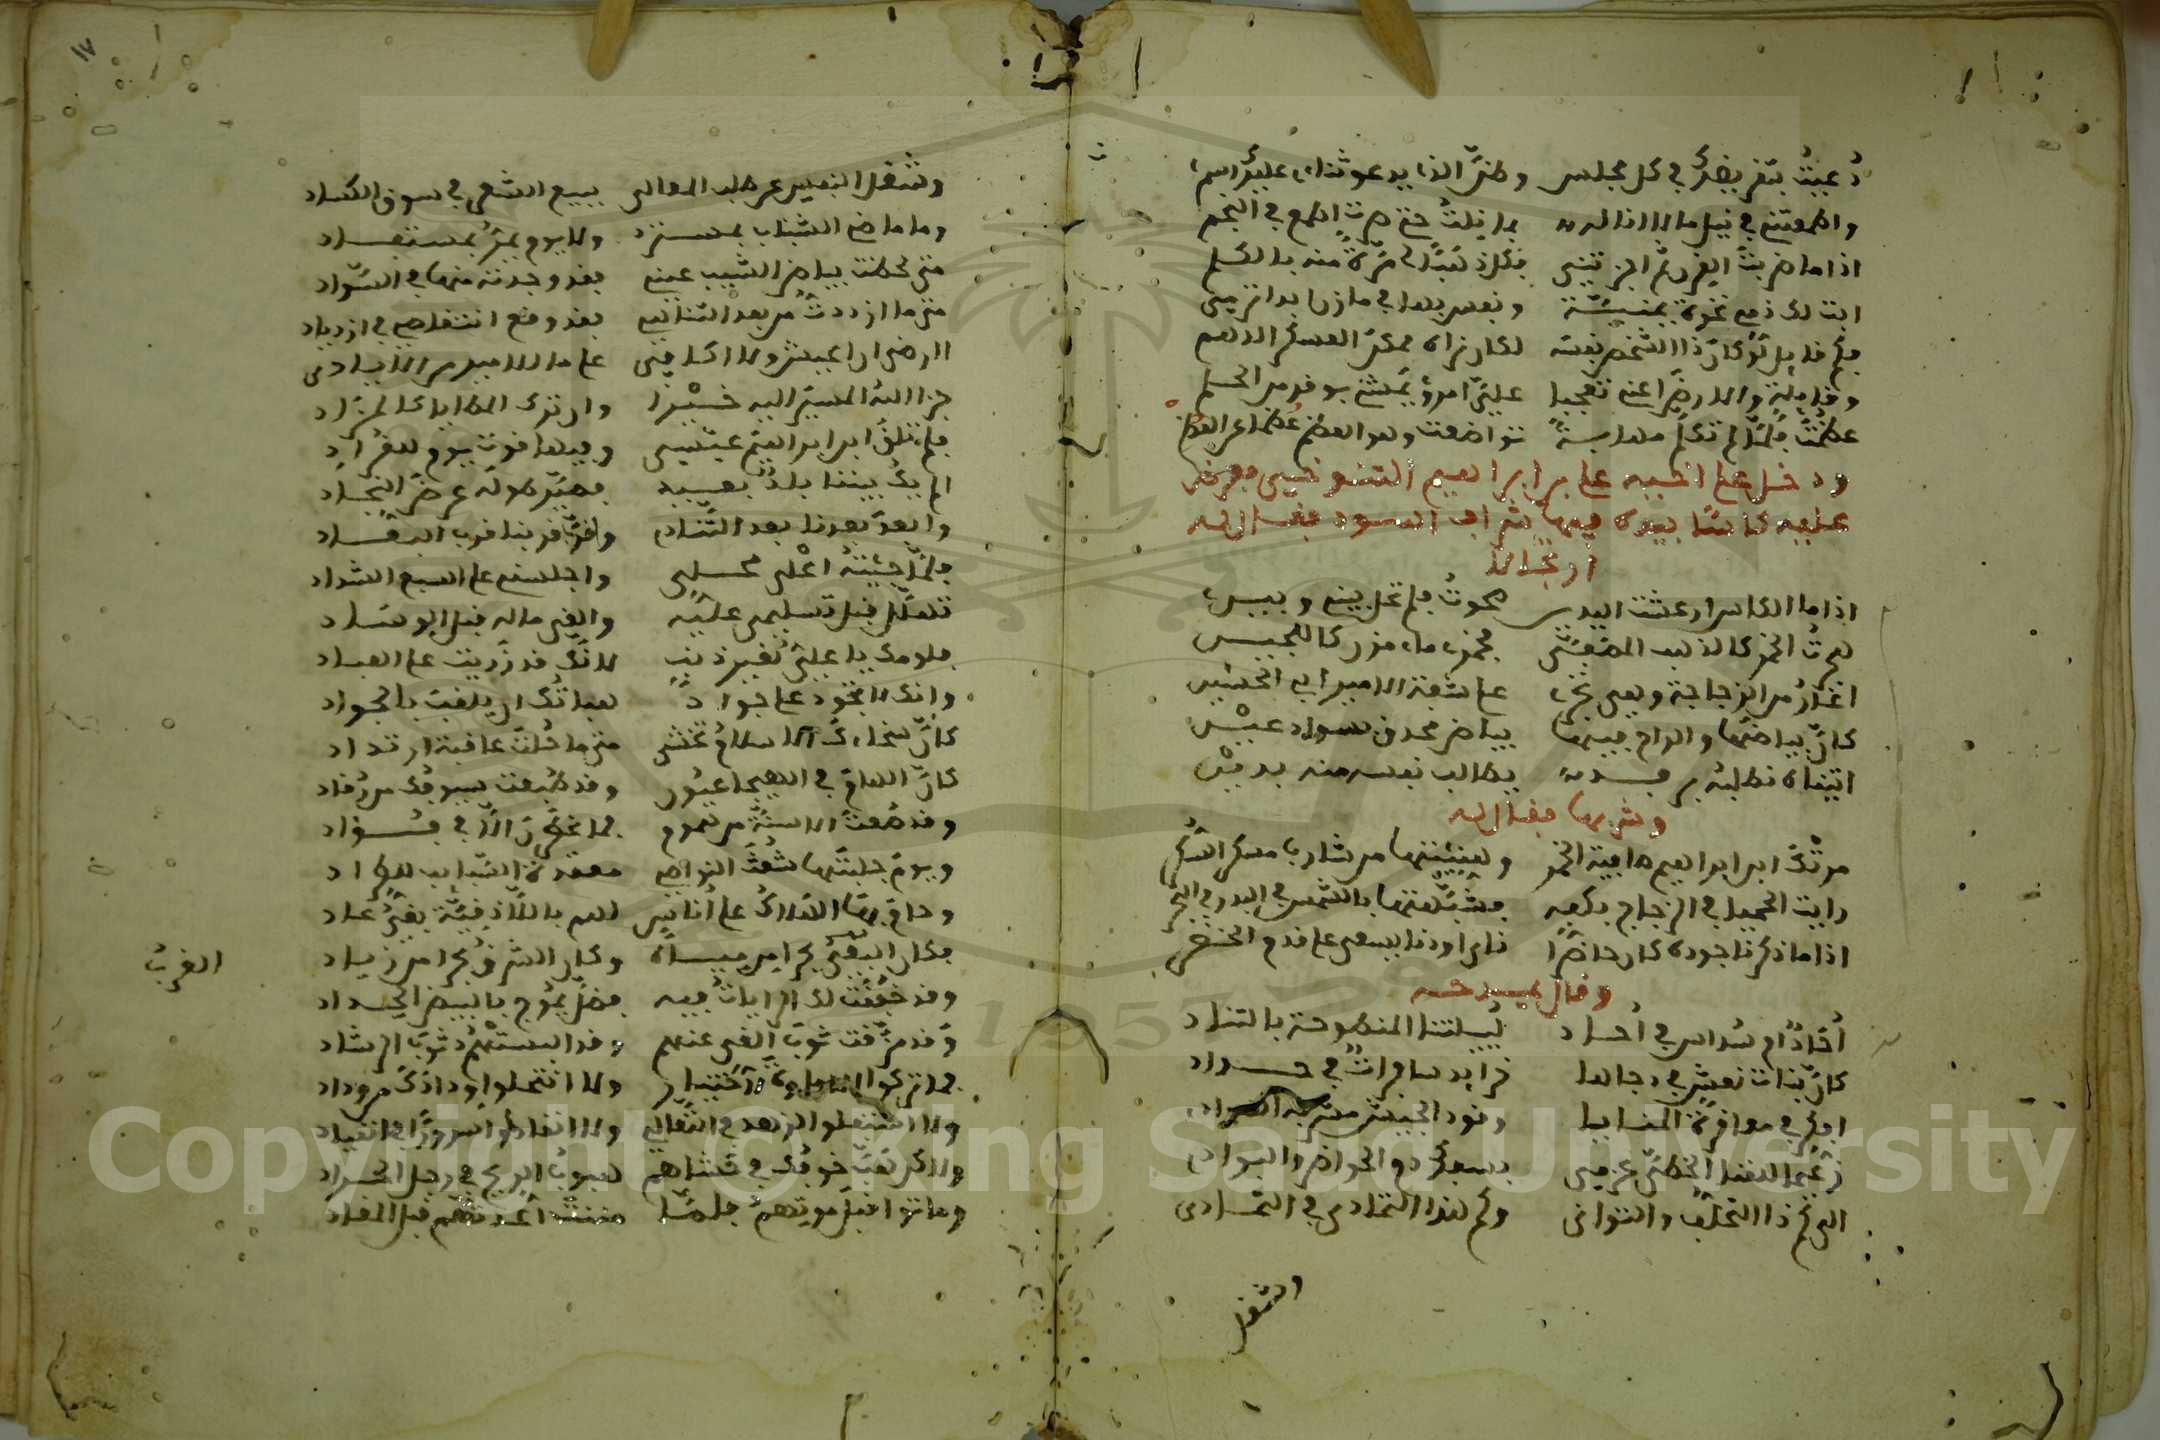 دُعيتُ بتقريظك في كل مجلس وظنّ الذي يدعو ثنائي عليك اسمي
واطمعتني في نيل ما لا اناله بما نلتُ حتى صرت اطمع في النجم
اذا ما ضربت القرن ثم اجزتني فكل ذهبا لي مرّة منه بالكلم
ابت لك ذمي نخوة يمنيّة ونفس بها في مازق ابدا ترمي
فكم قايل لو كان ذا الشخص نفسه لكان قراه مكمن العسكر الدهم
وقايلة والارض اعني تعجبا عليّ امرؤ يمشي بوقري من الحلم
عظمتَ فلمّا لم تكلّم مهابةً تواضعت وهو العظم عُظما عن العظم
ودخل على علي بن ابراهيم التنوخي فعرض
عليه كاسًا بيده فيها شراب اسود فقال له
ارتجالا
اذا ما الكاس ارعشت اليدين صحوتُ فلم تحل بيني وبيني
هجرتُ الخمر كالذهب المصفّى فخمري ماء مزن كاللجين
اغار من الزجاجة وهي تجري على شفة الامير ابي الحسين
كانّ بياضها والراح فيها بياض محدق بسواد عين
اتيناه نطالبه برفد يطالب نفسه منه بدين
وشربها فقال له
مرتك ابن ابراهيم صافية الخمر وهنئتها من شارب مسكر السكر
رايت الحميا في الزجاج بكفه فشبهتها بالشمس في البدر في البحر
اذا ما ذكرنا جوده كان حاضرًا ناى او دنا يسعى على قدم الخضر
وقال يمدحه
أحادٌ ام سُداس في أحاد لُييلتنا المنوطة بالتناد
كانّ بنات نعش في دجاها خرايد سافرات في حداد
افكر في معاقرة المنايا وقود الخيل مشرفة الهوادي
زعيما للقنا الخطّيّ عزمي بسفك دم الحواضر والبوادي
الى كم ذا التخلف والتواني وكم هذا التمادي في التمادي
وشغل
١٧
وشغل النفس عن طلب المعالي ببيع الشعر في سوق الكساد
وما ماضي الشباب بمسترد ولا يوم يمرّ بمستعاد
متى لحظت بياض الشيب عيني فقد وجدته منها في السواد
متى ما ازددتُ من بعد التناهي فقد وقع انتقاصي في ازدياد
اارضى ان اعيش ولا اكافي على ما للامير من الايادي
جزا الله المسير اليه خيرا وان ترك المطايا كالمزاد
فلم تلق ابن ابراهيم عنسي وفيها قوت يوم للقراد
الم يك بيننا بلدٌ بعيد فصيّر طوله عرض النجاد
وابعد بعدنا بعد التداني وقرّب قربنا قرب البعاد
فلمّا جئته اعلى محلي واجلسني على السبع الشداد
تهلّل قبل تسليمي عليه والقى ماله قبل الوساد
نلومك يا عليّ لغير ذنب لانّك قد زريت على العباد
وانك لا تجود على جوادٍ هباتُك ان يلقب بالجواد
كانّ سخاءك الاسلامُ تخشى متى ما حُلتَ عاقبة ارتداد
كانّ الهام في الهيجا عيون وقد طُبعت سيوفك من رقاد
وقد صُغتَ الاسنّة من هموم فما يخطرن الّا في فؤاد
ويوم جلبتها شُعثَ النواصي معقدة السبايب للطراد
وحام بها الهلاكُ على أناس لهم باللاذقيّة بغيُ عاد
فكان الغرب بحرا من مياه وكان الشرق بحرا من جياد
الغربُ
وقد خفقت لك الرايات فيه فظلّ يموج بالبيض الحداد
وقد مزّقت ثوب الغي عنهم وقد البستهم ثوب الرشاد
فما تركوا الامارة لاختيار ولا انتحلوا ودادك من وداد
ولا استفلوا لزهد في التعالي ولا انقادوا سرورًا بانقياد
ولاكن هبّ خوفك في حشاهم هبوبُ الريح في رجل الجراد
وماتوا قبل موتهم فلمّا مننت اعدتهم قبل المعاد
Copyright © King Saud University
1957